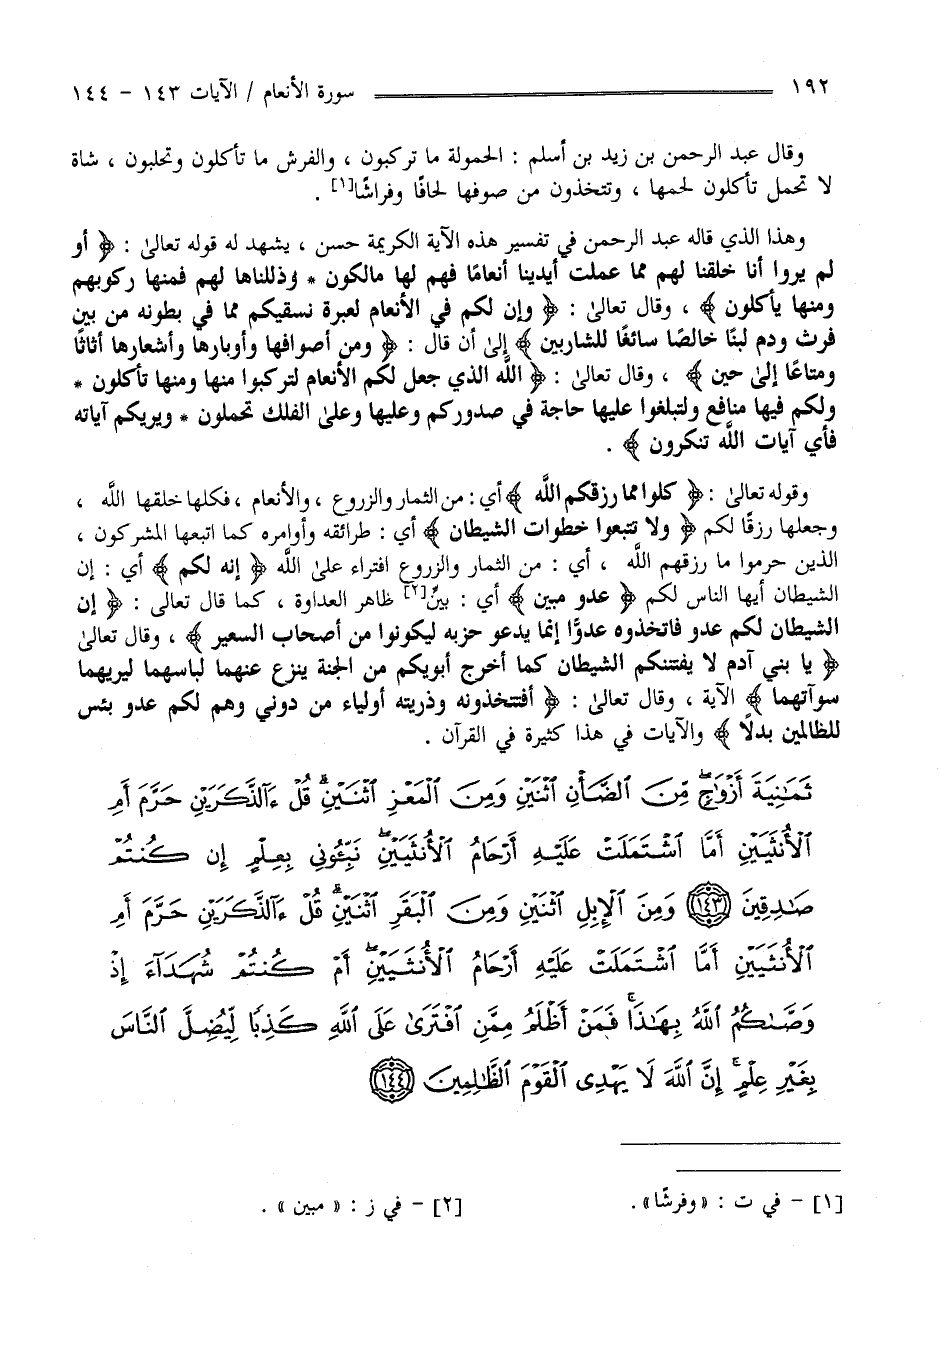 ١٩٢ سورة الأنعام / الآيات ١٤٣ - ١٤٤
وقال عبد الرحمن بن زيد بن أسلم : الحمولة ما تركبون ، والفرش ما تأكلون وتحلبون ، شاة
لا تحمل تأكلون لحمها ، وتتخذون من صوفها لحافًا وفراشًا[١] .
وهذا الذي قاله عبد الرحمن في تفسير هذه الآية الكريمة حسن ، يشهد له قوله تعالىٰ : ﴿ أو
لم يروا أنا خلقنا لهم مما عملت أيدينا أنعامًا فهم لها مالكون * وذللناها لهم فمنها ركوبهم
ومنها يأكلون ﴾ ، وقال تعالىٰ : ﴿ وإن لكم في الأنعام لعبرة نسقيكم مما في بطونه من بين
فرث ودم لبنًا خالصًا سائغًا للشاربين ﴾ إلىٰ أن قال : ﴿ ومن أصوافها وأوبارها وأشعارها أثاثًا
ومتاعًا إلىٰ حين ﴾ ، وقال تعالىٰ : ﴿ اللَّه الذي جعل لكم الأنعام لتركبوا منها ومنها تأكلون *
ولكم فيها منافع ولتبلغوا عليها حاجة في صدوركم وعليها وعلىٰ الفلك تحملون * ويريكم آياته
فأي آيات اللَّه تنكرون ﴾ .
وقوله تعالىٰ : ﴿ كلوا مما رزقكم اللَّه ﴾ أي : من الثمار والزروع ، والأنعام ، فكلها خلقها اللَّه ،
وجعلها رزقًا لكم ﴿ ولا تتبعوا خطوات الشيطان ﴾ أي : طرائقه وأوامره كما اتبعها المشركون ،
الذين حرموا ما رزقهم اللَّه ، أي : من الثمار والزروع افتراء علىٰ اللَّه ﴿ إنه لكم ﴾ أي : إن
الشيطان أيها الناس لكم ﴿ عدو مبين ﴾ أي : بينٌ[٢] ظاهر العداوة ، كما قال تعالى : ﴿ إن
الشيطان لكم عدو فاتخذوه عدوًّا إنما يدعو حزبه ليكونوا من أصحاب السعير ﴾ ، وقال تعالىٰ
﴿ يا بني آدم لا يفتننكم الشيطان كما أخرج أبويكم من الجنة ينزع عنهما لباسهما ليريهما
سوآتهما ﴾ الآية ، وقال تعالىٰ : ﴿ أفتتخذونه وذريته أولياء من دوني وهم لكم عدو بئس
للظالمين بدلًا ﴾ والآيات في هذا كثيرة في القرآن .
ثَمَٰنِيَةَ أَزْوَٰجٍۖ مِّنَ ٱلضَّأْنِ ٱثْنَيْنِ وَمِنَ ٱلْمَعْزِ ٱثْنَيْنِۗ قُلْ ءَآلذَّكَرَيْنِ حَرَّمَ أَمِ
ٱلْأُنثَيَيْنِ أَمَّا ٱشْتَمَلَتْ عَلَيْهِ أَرْحَامُ ٱلْأُنثَيَيْنِۖ نَبِّـُٔونِي بِعِلْمٍ إِن كُنتُمْ
صَٰدِقِينَ ﴿١٤٣﴾ وَمِنَ ٱلْإِبِلِ ٱثْنَيْنِ وَمِنَ ٱلْبَقَرِ ٱثْنَيْنِۗ قُلْ ءَآلذَّكَرَيْنِ حَرَّمَ أَمِ
ٱلْأُنثَيَيْنِ أَمَّا ٱشْتَمَلَتْ عَلَيْهِ أَرْحَامُ ٱلْأُنثَيَيْنِۖ أَمْ كُنتُمْ شُهَدَآءَ إِذْ
وَصَّىٰكُمُ ٱللَّهُ بِهَٰذَاۚ فَمَنْ أَظْلَمُ مِمَّنِ ٱفْتَرَىٰ عَلَى ٱللَّهِ كَذِبًا لِّيُضِلَّ ٱلنَّاسَ
بِغَيْرِ عِلْمٍۚ إِنَّ ٱللَّهَ لَا يَهْدِى ٱلْقَوْمَ ٱلظَّٰلِمِينَ ﴿١٤٤﴾
[١] - في ت : « وفرشًا» . [٢] - في ز : « مبين » .